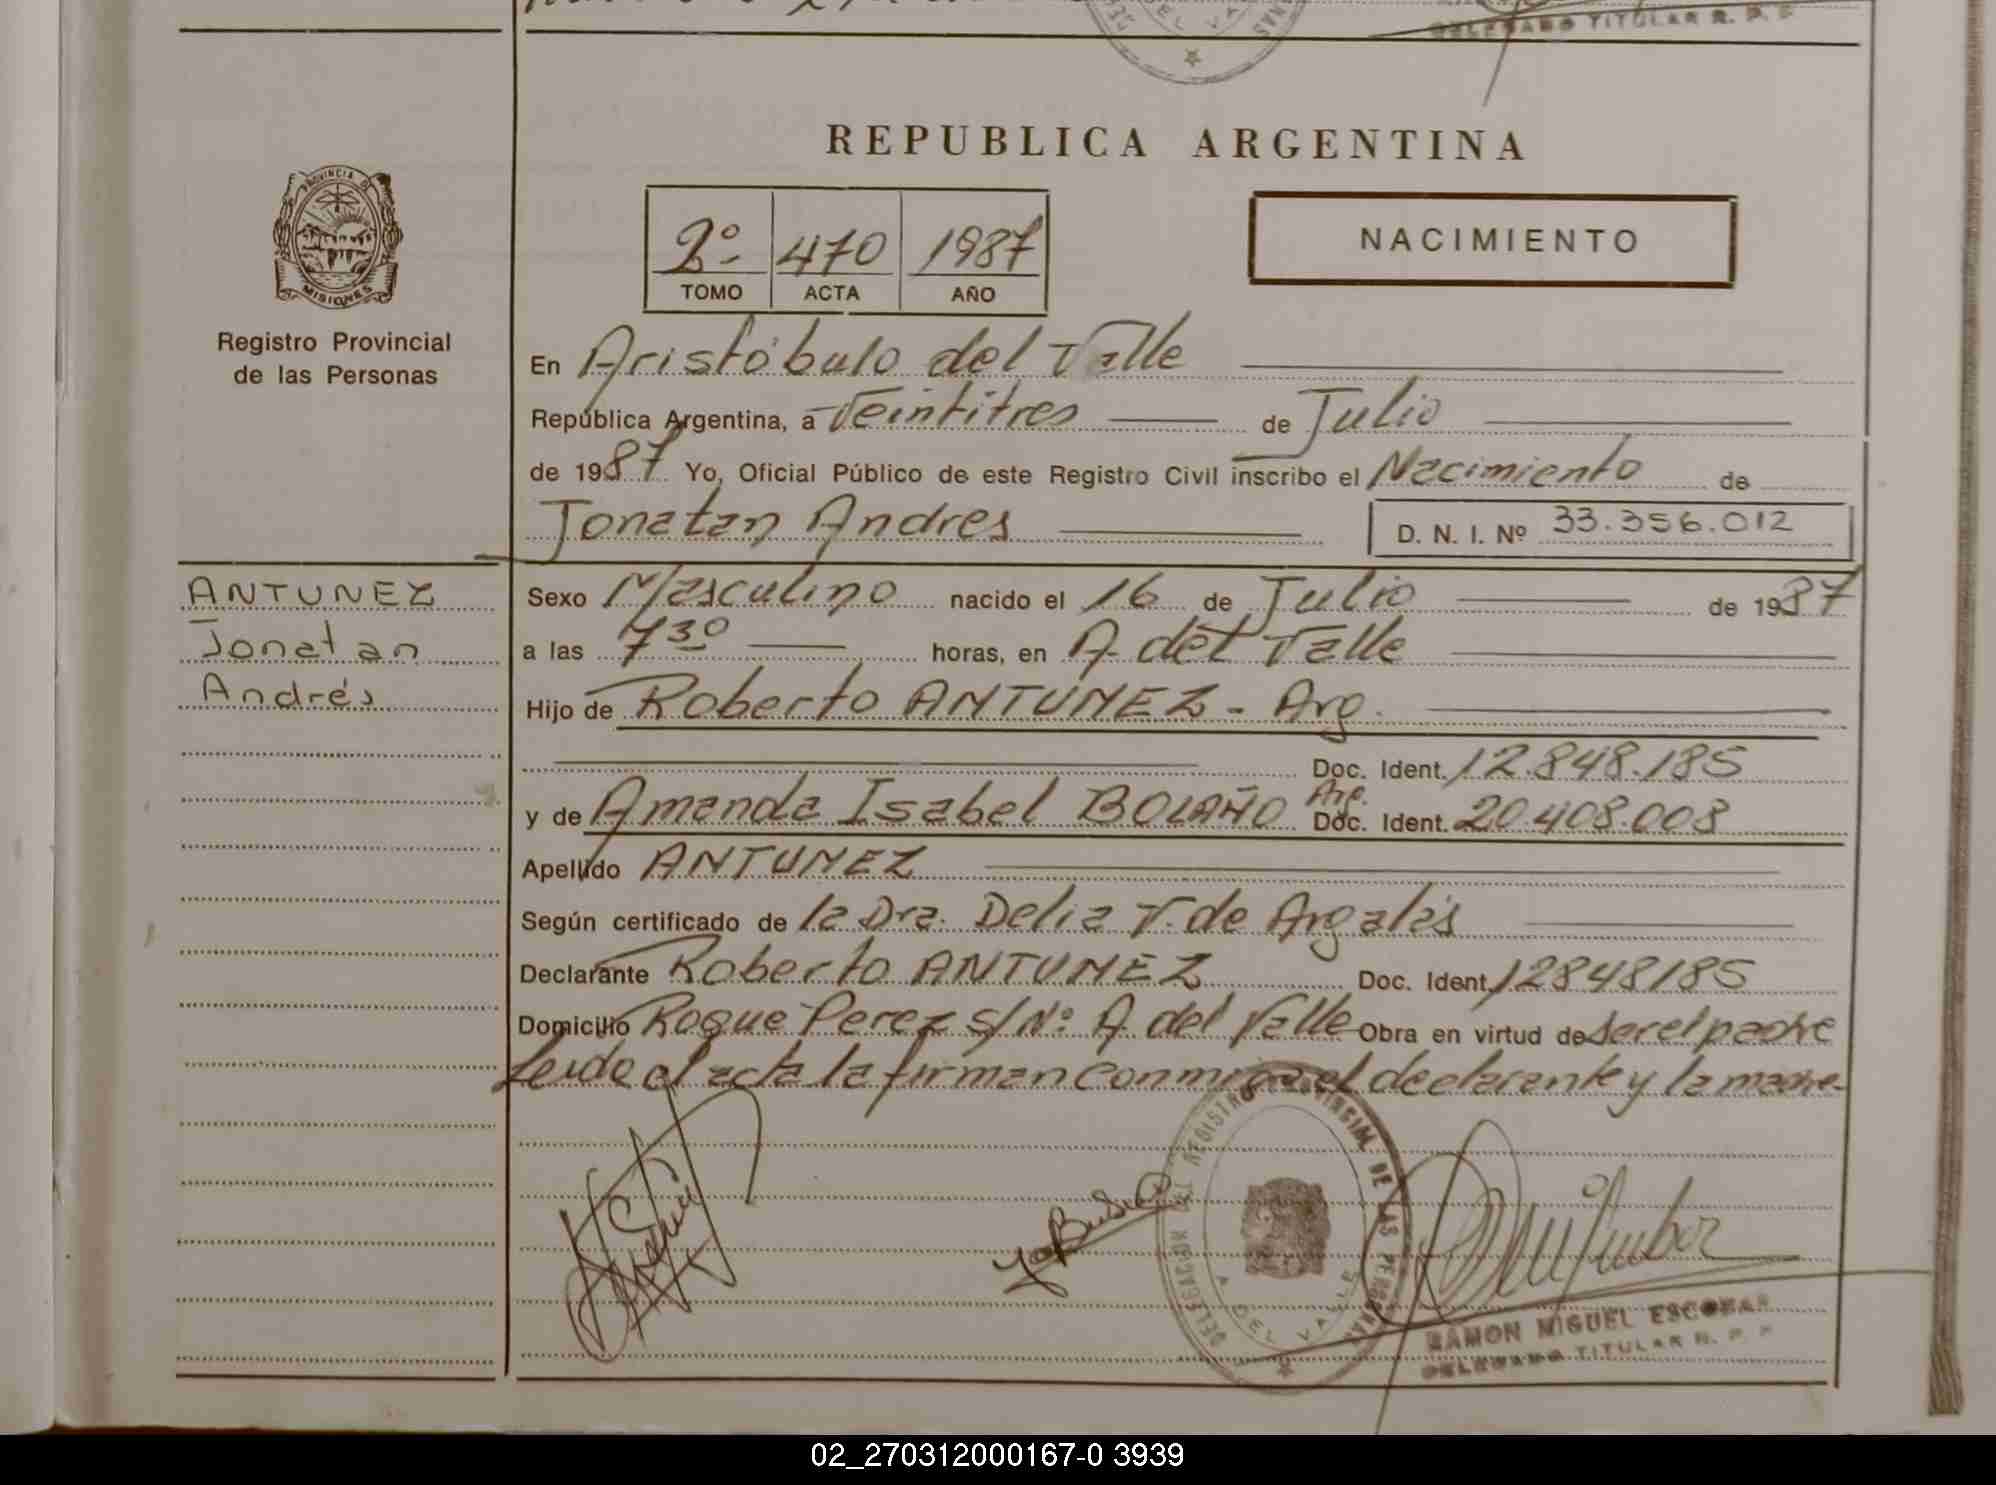 DELEGADO TITULAR R. P. P.
REPUBLICA ARGENTINA
PROVINCIA DE
MISIONES
Registro Provincial
de las Personas
2º 470 1987
TOMO ACTA AÑO
NACIMIENTO
En Aristóbulo del Valle
República Argentina, a Veintitres de Julio
de 1987 Yo, Oficial Público de este Registro Civil inscribo el Nacimiento de
Jonatan Andres D. N. I. Nº 33.356.012
ANTUNEZ
Jonatan
Andrés
Sexo Masculino nacido el 16 de Julio de 1987
a las 7 30 horas, en A. del Valle
Hijo de Roberto ANTUNEZ - Arg.
Doc. Ident. 12.848.185
y de Amanda Isabel BOLAÑO Arg. Doc. Ident. 20.408.008
Apellido ANTUNEZ
Según certificado de la Dra. Delia V. de Argalás
Declarante Roberto ANTUNEZ Doc. Ident. 12848185
Domicilio Roque Perez s/Nº A. del Valle Obra en virtud de ser el padre
Leida el acta la firman conmigo el declarante y la madre-
DELEGACION DEL REGISTRO PROVINCIAL DE LAS PERSONAS
A. DEL VALLE
RAMON MIGUEL ESCOBAR
DELEGADO TITULAR R. P. P.
02_270312000167-0 3939